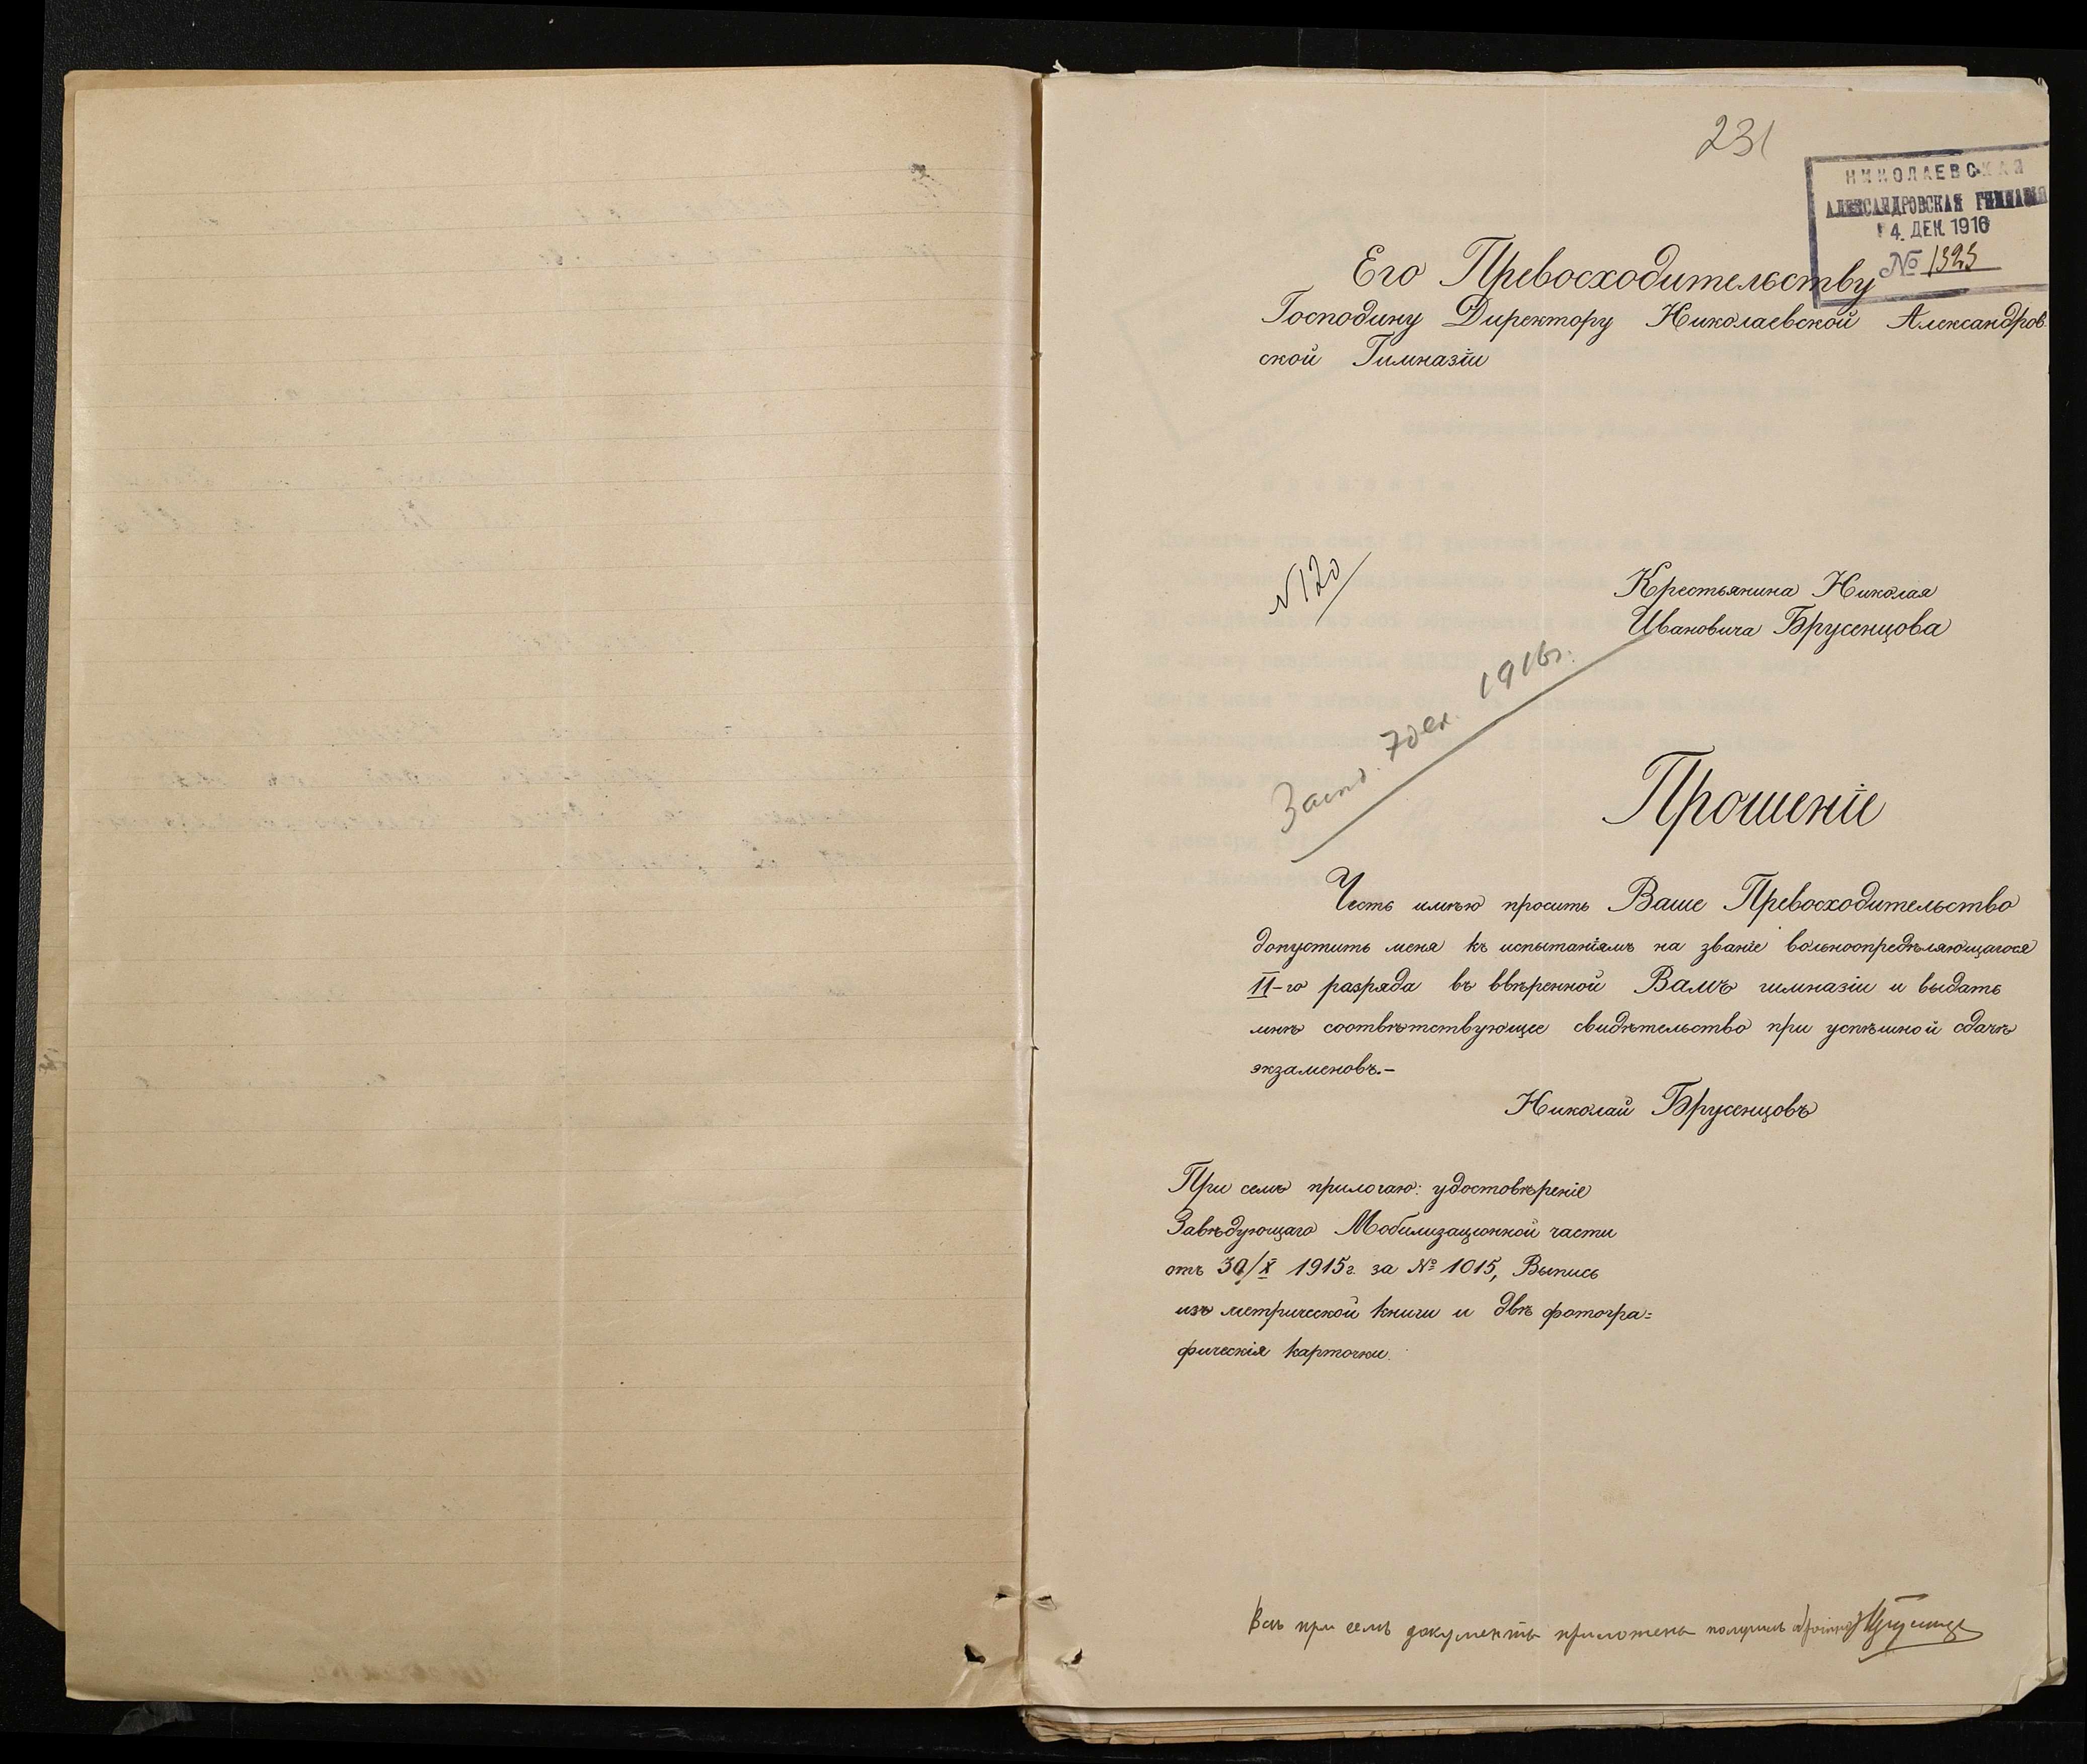 231
НИКОЛАЕВСКАЯ
АЛЕКСАНДРОВСКАЯ ГИМНАЗІЯ
4. ДЕК. 1916
№ 1323
Его Превосходительству
Господину Директору Николаевской Александров-
ской Гимназіи
№120
Крестьянина Николая
Ивановича Брусенцова
7 дек. 1916г.
Прошеніе
Честь имѣю просить Ваше Превосходительство
допустить меня къ испытаніямъ на званіе вольноопредѣляющагося
II-го разряда въ ввѣренной Вамъ гимназіи и выдать
мнѣ соотвѣтствующее свидѣтельство при успѣшной сдачѣ
экзаменовъ.-
Николай Брусенцовъ
При семъ прилогаю: удостовѣреніе
Завѣдующаго Мобилизаціонной части
отъ 30/X 1915г. за № 1015, Выпись
изъ метрической книги и двѣ фотогра=
фическія карточки.
Всѣ при семъ документы приложены получилъ обратно